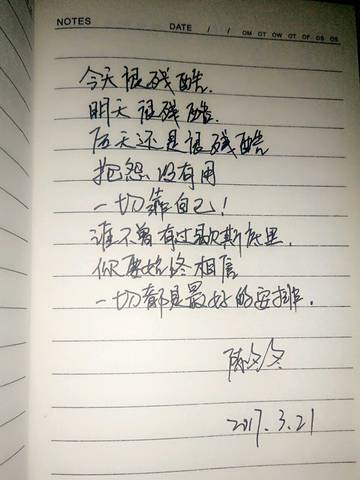 NOTES DATE / /
OM OT OW OT OF OS OS
今天很残酷.
明天很残酷.
后天还是很残酷
抱怨没有用
一切靠自己!
谁不曾有过歇斯底里.
你要始终相信
一切都是最好的安排.
2017.3.21